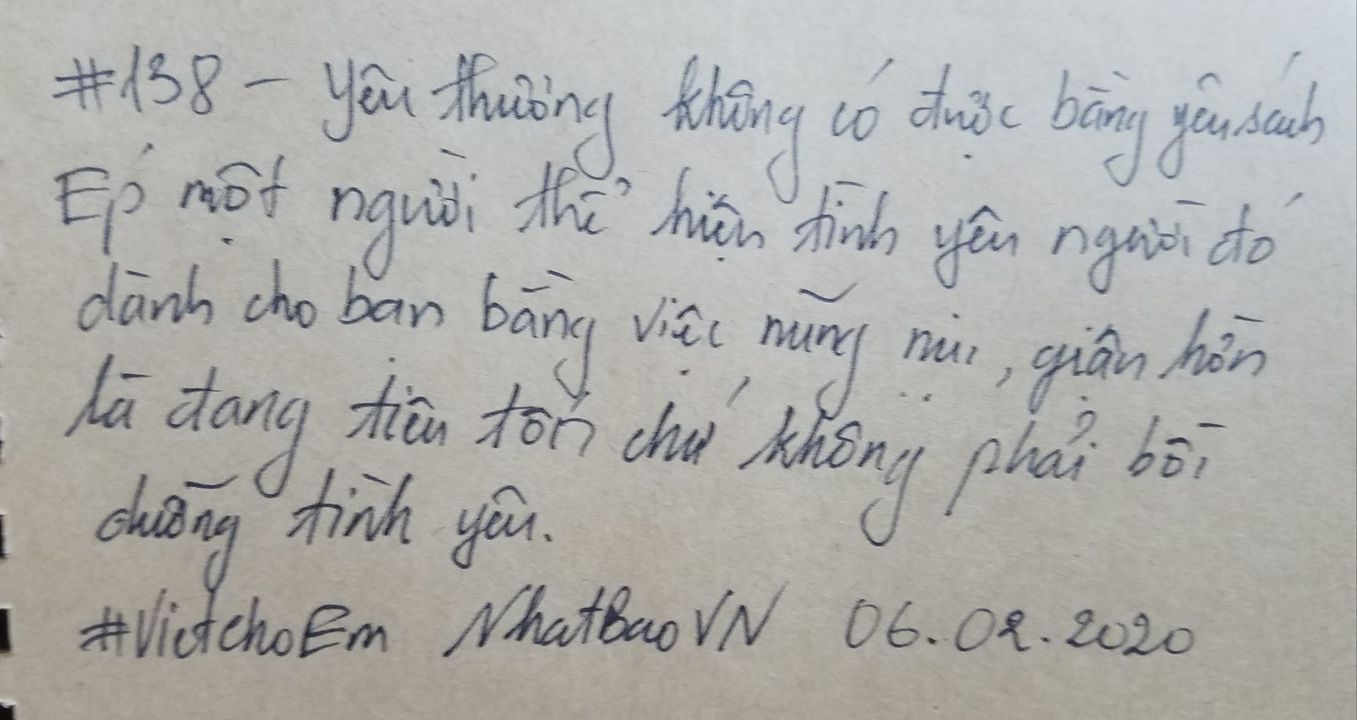 #138 - Yêu thương không có được bằng yêu sách
Ép một người thể hiện tình yêu người đó
dành cho bạn bằng việc nũng nịu, giận hờn
là đang tiêu tốn chứ không phải bồi
dưỡng tình yêu.
#VietchoEm NhatBaoVN 06.02.2020